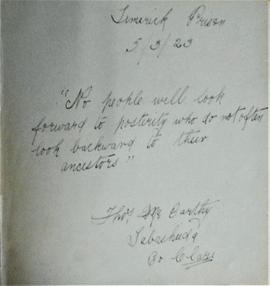 Limerick Prison
5/3/23
"No people will look
forward to posterity who do not often
look backward to their
ancestors"
Thos Mc Carthy
Co Clare